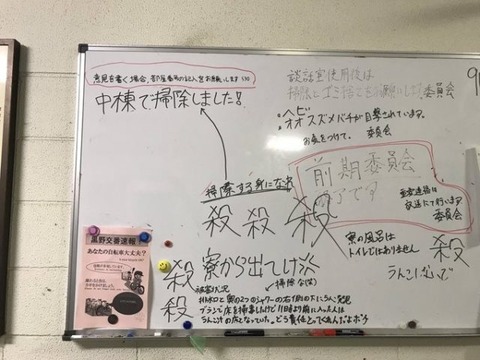 意見を書く場合、部屋番号の記入をお願いします
中棟で掃除しました!
談話室使用後は
掃除とゴミ捨てをお願いします 委員会
・ヘビ
・オオスズメバチが目撃されています。
お気をつけて。 委員会
掃除する身になれ
前期委員会
終了です
委員会
殺 殺 殺
寮の風呂は
トイレではありません
殺
うんこしないで
黒野交番速報
あなたの自転車大丈夫?
殺 寮から出てけ
掃除
殺
被害状況
排水口と奥の2つのシャワーの右側の下にうんこ発見
ブラシで床を掃除したけど11時より前に入った人は
うんこ汁の床となっていた。どう責任とってくれんだよボケ